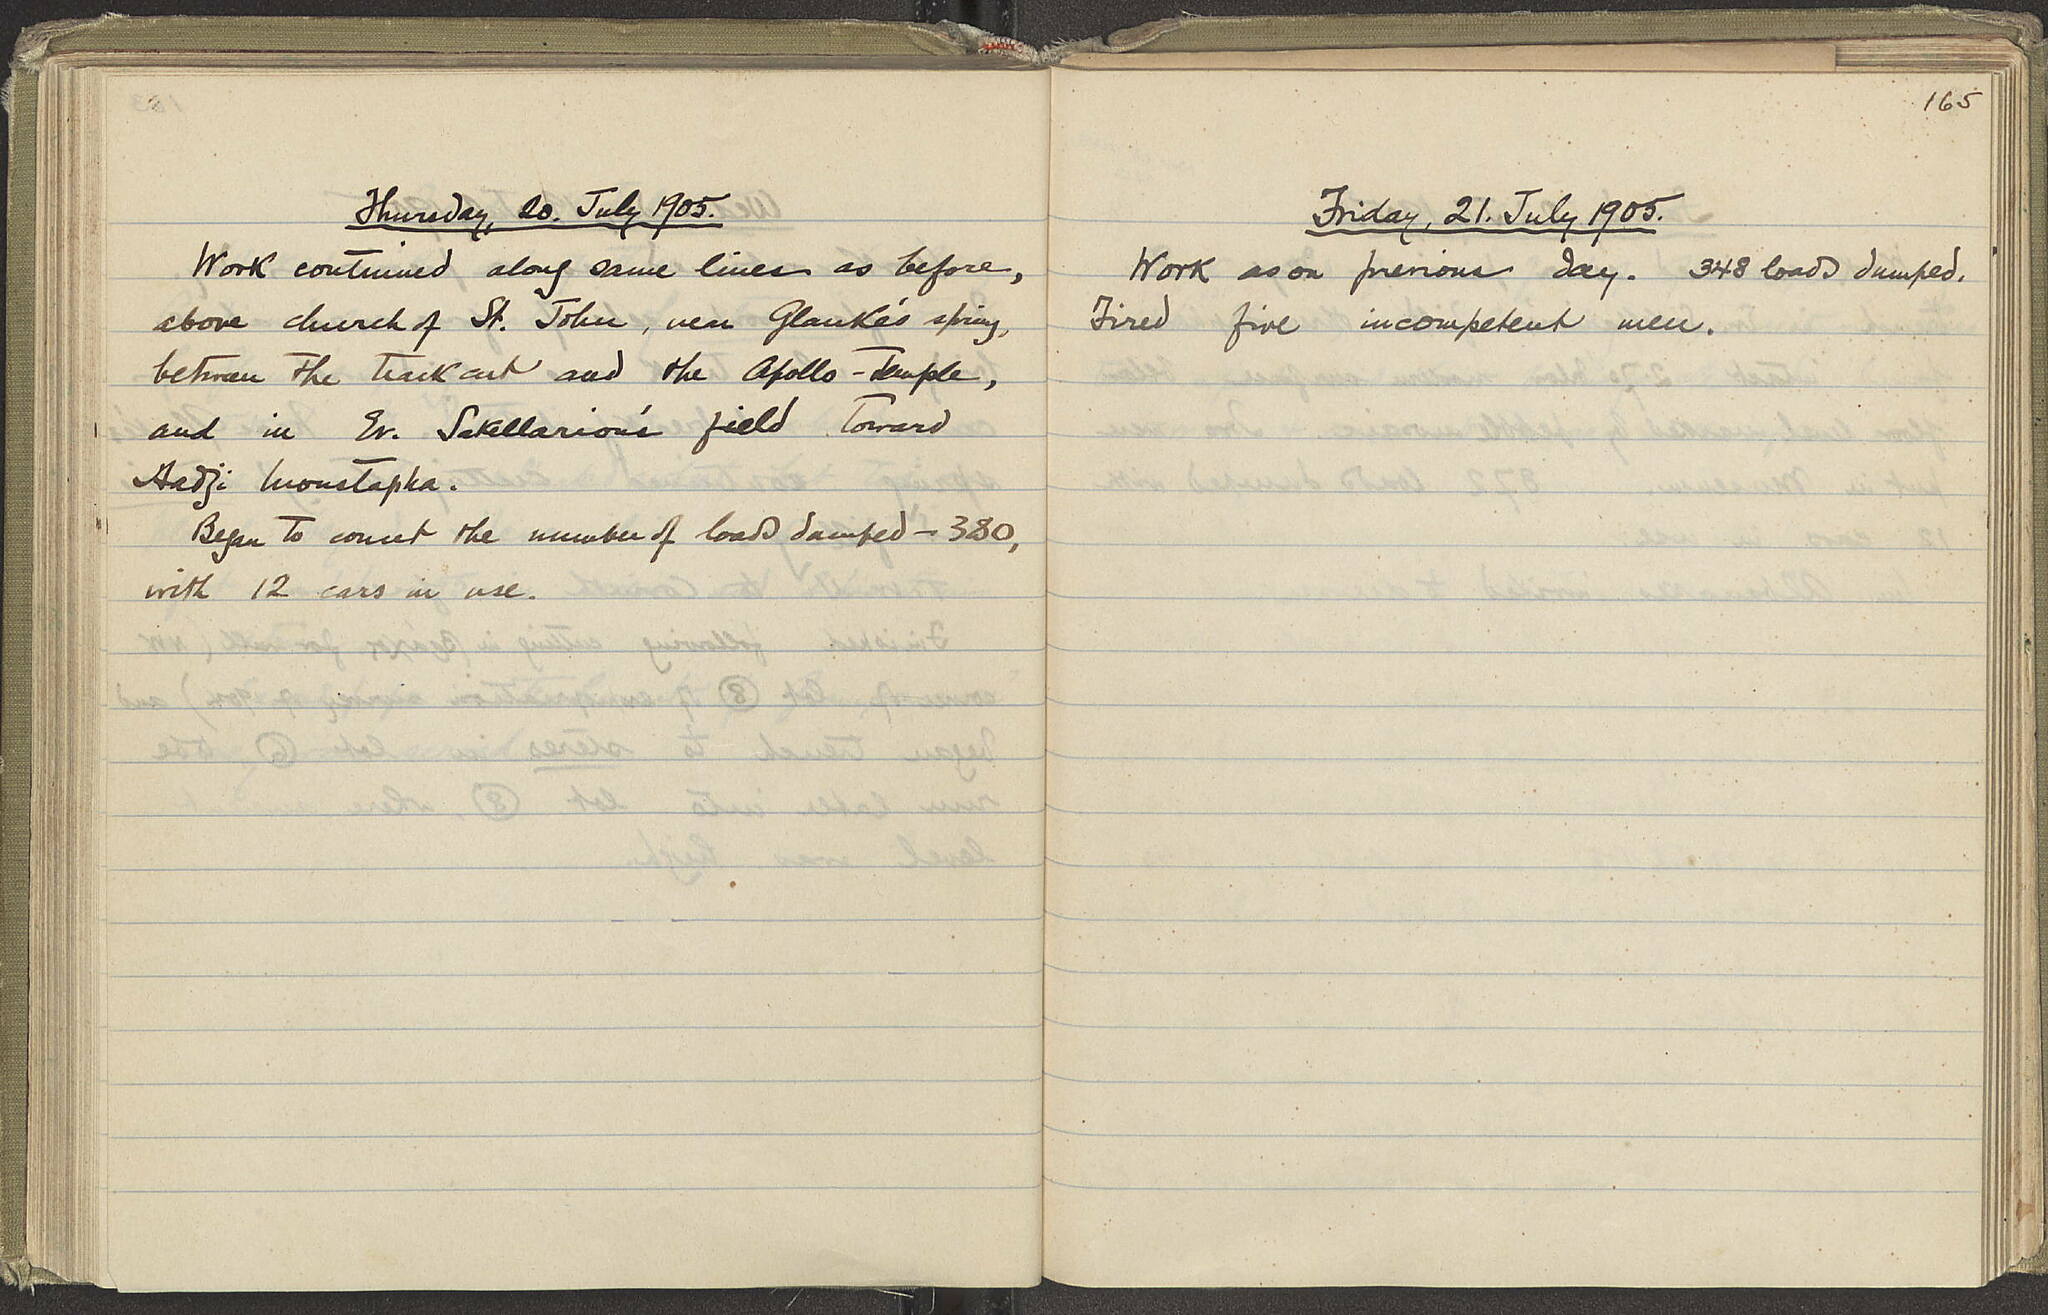 Thursday, 20. July 1905.
Work continued along same lines as before,
above church of St. John, near Glauke's spring,
between the track cut and the Apollo-Temple,
and in Ev. Sakellariou's field toward
Hadji Moustapha.
Began to count the number of loads dumped – 380,
with 12 cars in use.
165
Friday, 21. July 1905.
Work as on previous day. 348 loads dumped.
Fired five incompetent men.